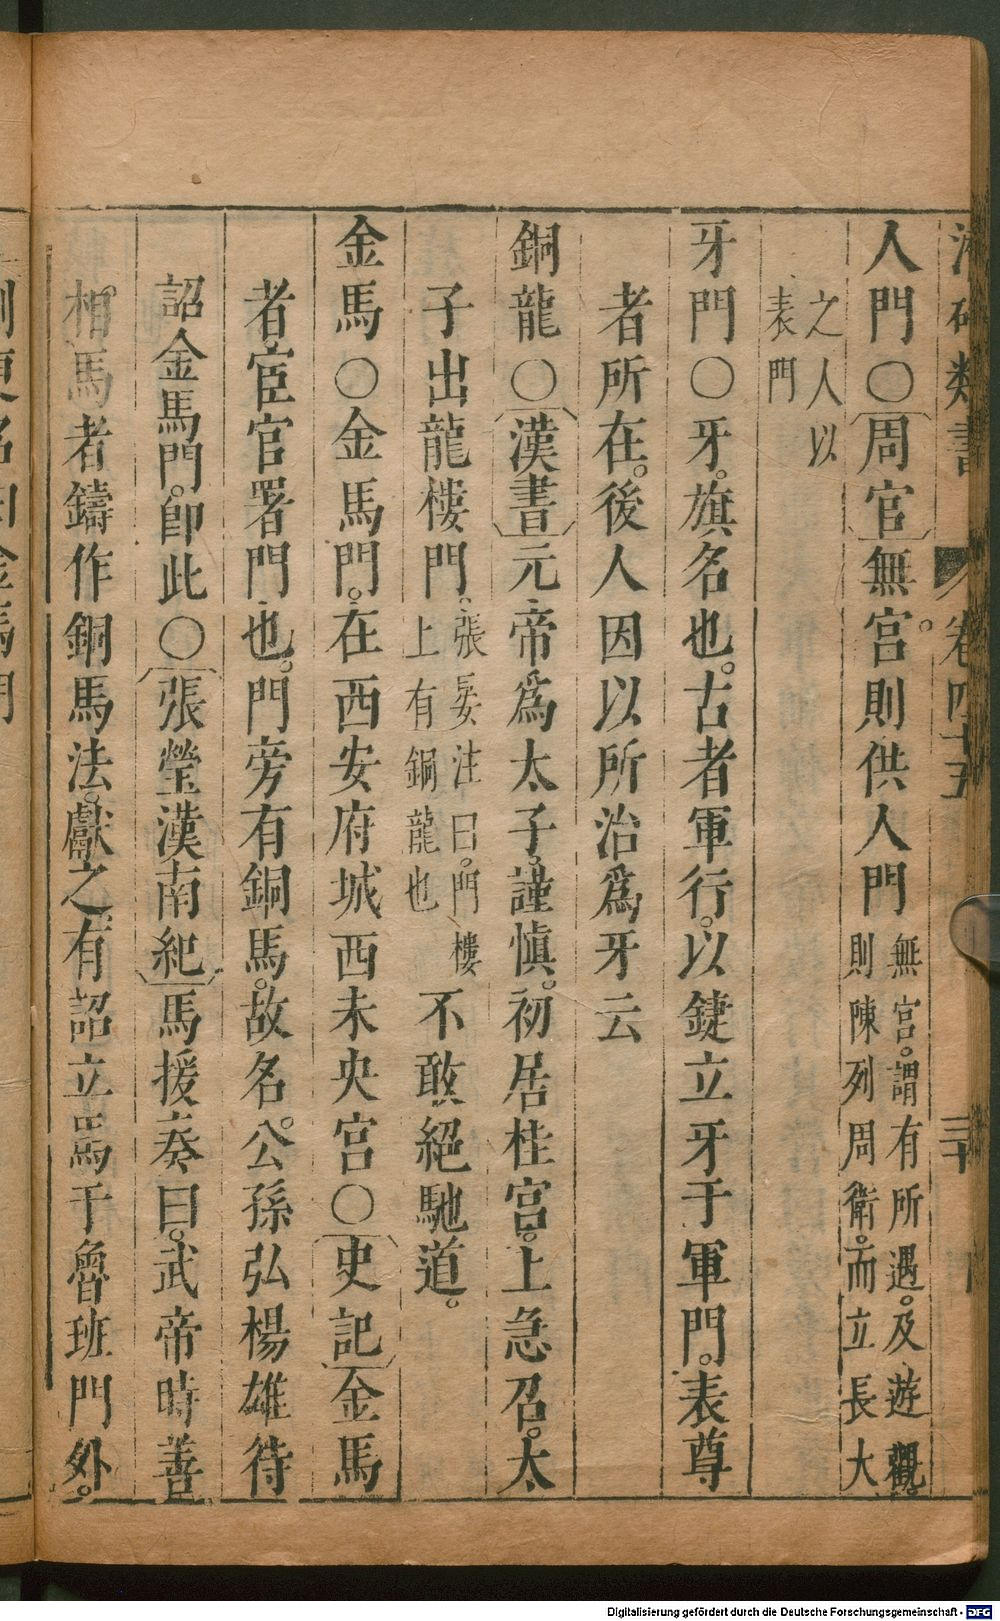 確類書 卷四十五 三十
人門○〔周官〕無宮。則供人門 無宮。謂有所遇。及遊觀。
則陳列周衛。而立長大
之人以
表門
牙門○牙。旗名也。古者軍行。以鍵立牙于軍門。表尊
者所在。後人因以所治爲牙云
銅龍○〔漢書〕元帝爲太子。謹慎。初居桂宮。上急召。太
子出龍樓門。張晏注曰。門樓
上有銅龍也 不敢絕馳道。
金馬○金馬門。在西安府城西未央宮○〔史記〕金馬
者宦官署門也。門旁有銅馬。故名。公孫弘楊雄待
詔金馬門。卽此○〔張瑩漢南紀〕馬援奏曰。武帝時善
相馬者鑄作銅馬法。獻之。有詔立馬于魯班門外。
更名曰金馬門
Digitalisierung gefördert durch die Deutsche Forschungsgemeinschaft - DFG